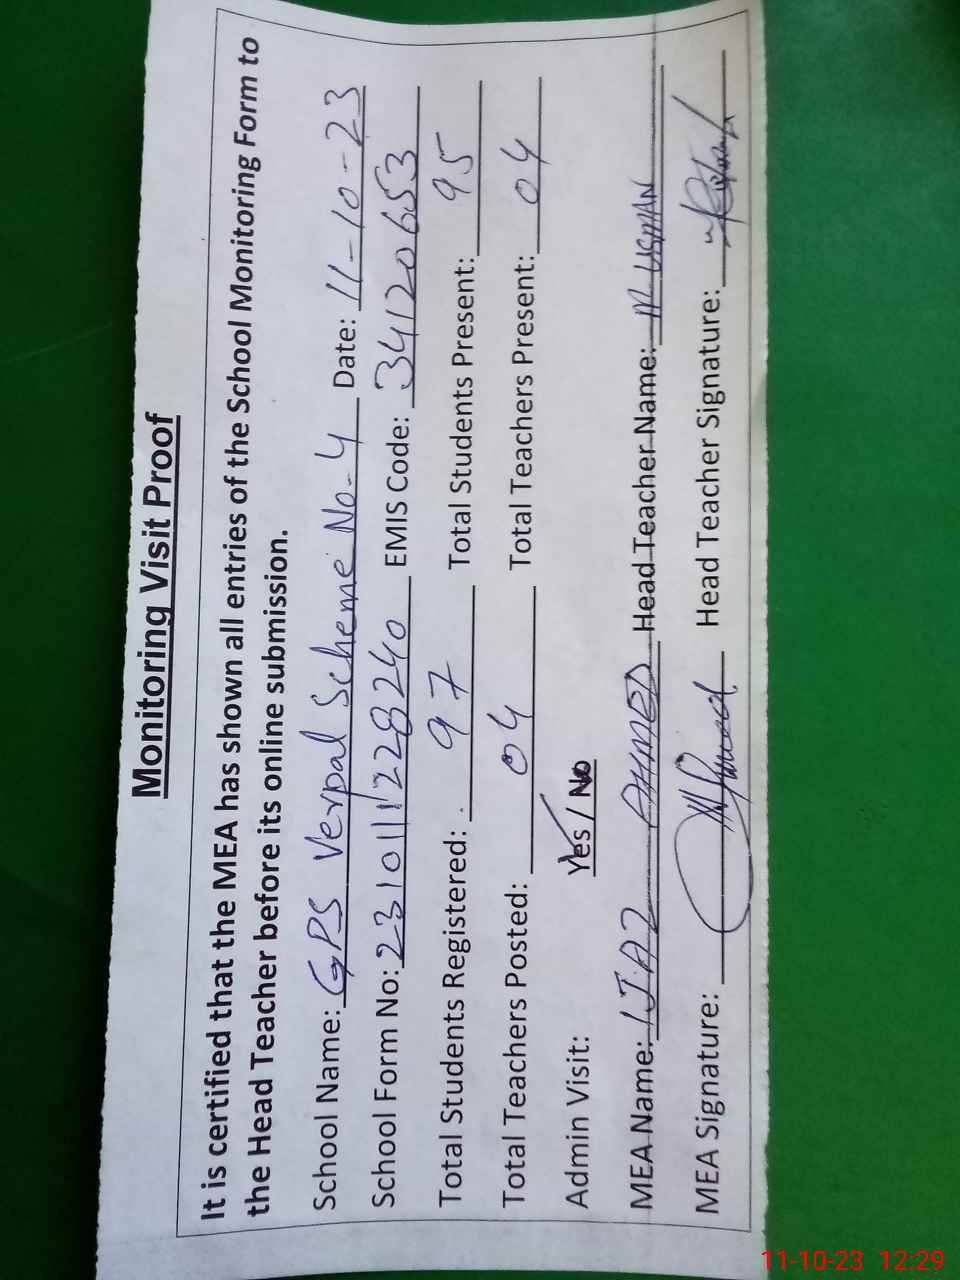 Monitoring Visit Proof
It is certified that the MEA has shown all entries of the School Monitoring Form to
the Head Teacher before its online submission.
School Name: GPS Verpal Scheme No-4 Date: 11-10-23
School Form No: 231011228240 EMIS Code: 34120653
Total Students Registered: 97 Total Students Present: 95
Total Teachers Posted: 04 Total Teachers Present: 04
Admin Visit: Yes / No
MEA Name: IJAZ AHMED Head Teacher Name: M USMAN
MEA Signature: Head Teacher Signature:
11-10-23 12:29